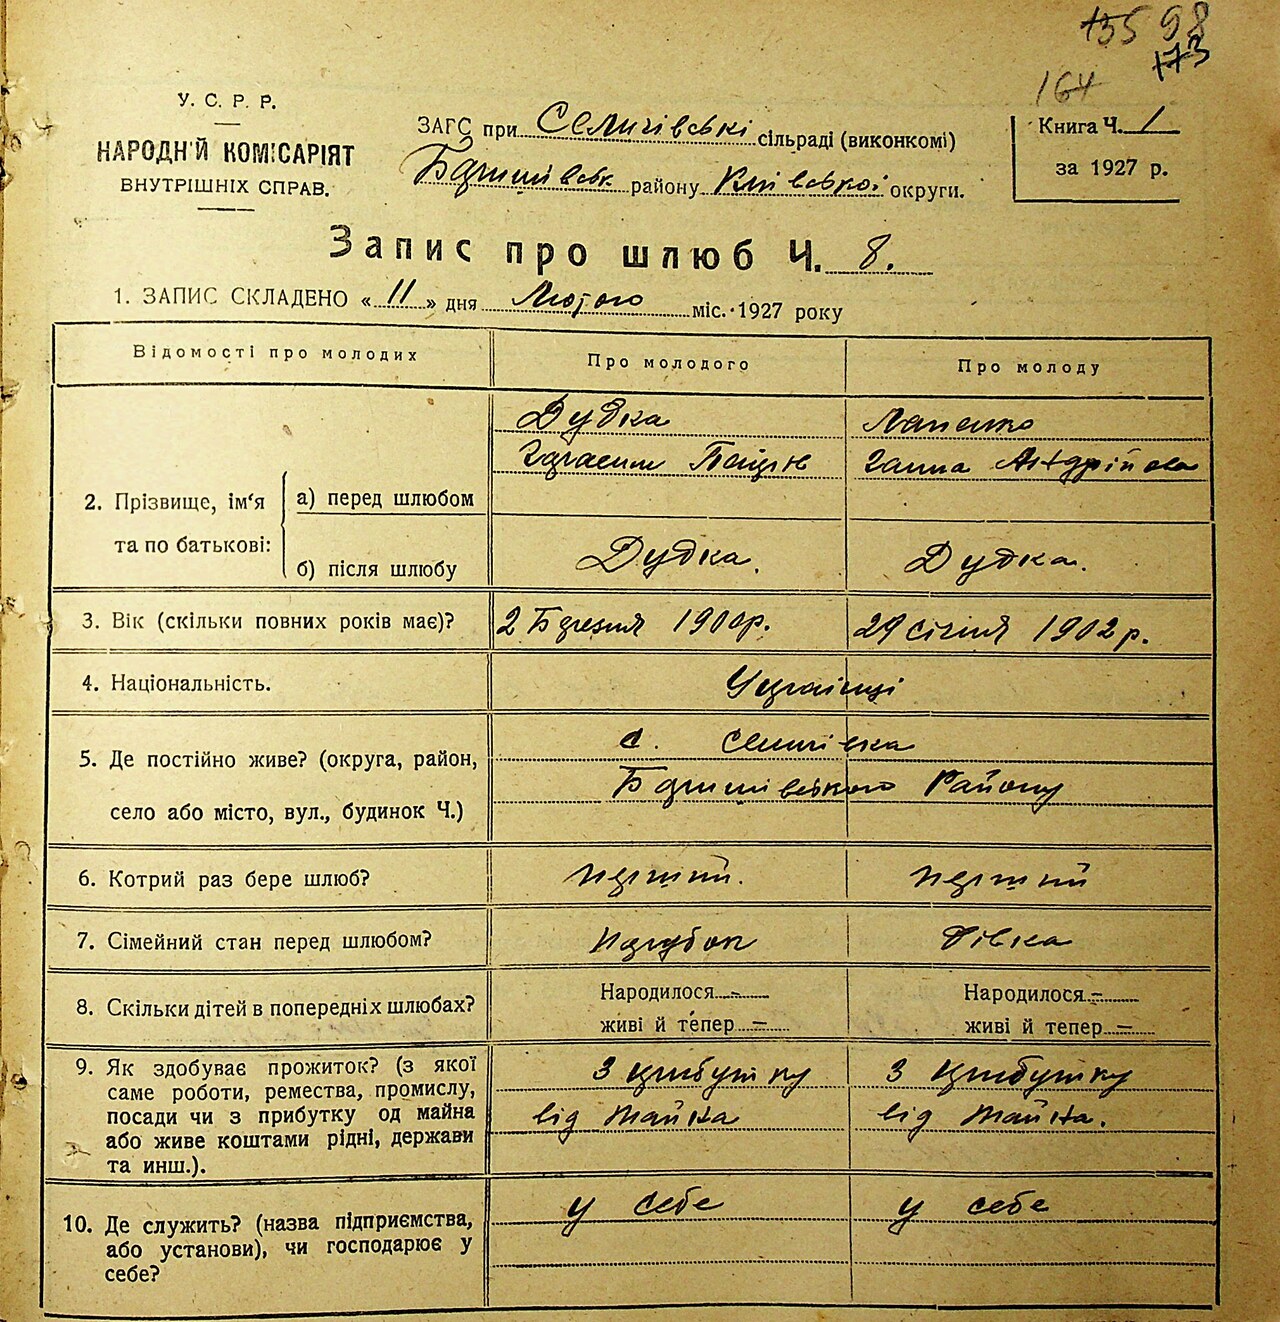 135 98
173
164
У. С. Р. Р.
НАРОДН'Й КОМІСАРІЯТ
ВНУТРІШНІХ СПРАВ.
ЗАГС при Селичівські сільраді (виконкомі)
району Київської округи.
Книга Ч. 1
за 1927 р.
Запис про шлюб Ч. 8.
1. ЗАПИС СКЛАДЕНО «11» дня Лютого міс. 1927 року
Відомості про молодих
Про молодого
Про молоду
2. Прізвище, ім'я та по батькові:
а) перед шлюбом
Дудка
Ганна Андрійовна
б) після шлюбу
Дудка.
Дудка.
3. Вік (скільки повних років має)?
2 Березня 1900р.
29 січня 1902 р.
4. Національність.
Українці
5. Де постійно живе? (округа, район,
село або місто, вул., будинок Ч.)
с. Селичівка
Району
6. Котрий раз бере шлюб?
перший.
перший
7. Сімейний стан перед шлюбом?
Парубок
Дівка
8. Скільки дітей в попередніх шлюбах?
Народилося –
живі й тепер –
Народилося –
живі й тепер –
9. Як здобуває прожиток? (з якої
саме роботи, ремества, промислу,
посади чи з прибутку од майна
або живе коштами рідні, держави
та инш.).
З прибутку
від майна
З прибутку
від майна.
10. Де служить? (назва підприємства,
або установи), чи господарює у
себе?
у себе
у себе